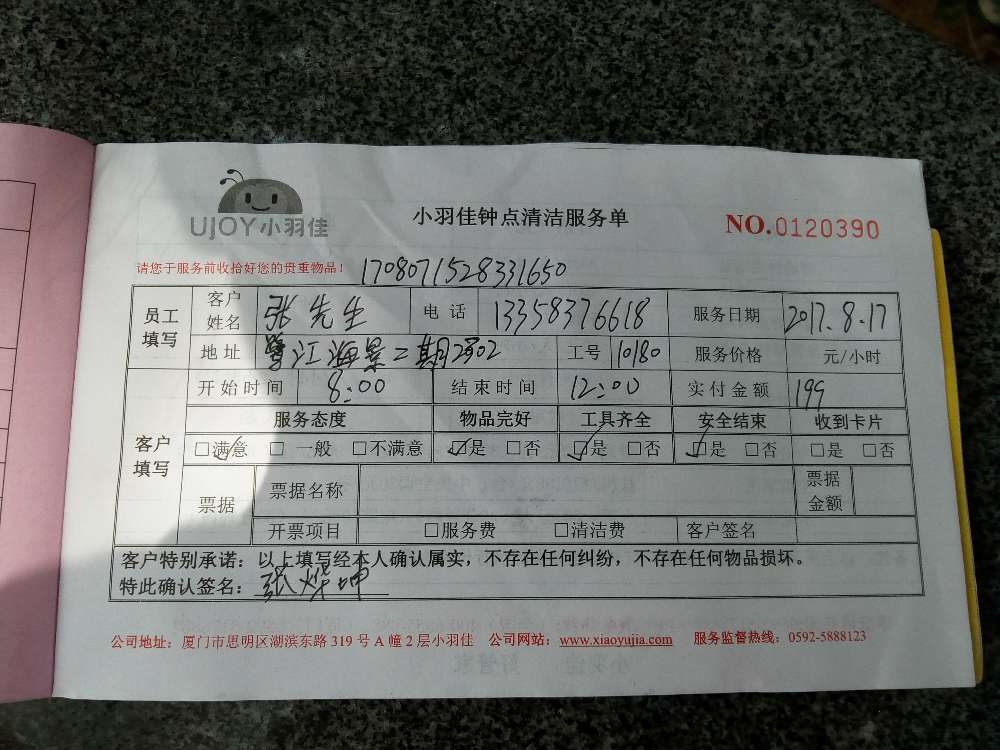 UJOY小羽佳
小羽佳钟点清洁服务单
NO.0120390
请您于服务前收拾好您的贵重物品! 1708071528331650
员工填写 客户姓名 张先生 电话 13358376618 服务日期 2017.8.17
地址 鹭江海景二期2302 工号 10180 服务价格 元/小时
客户填写 开始时间 8:00 结束时间 12:00 实付金额 199
服务态度 物品完好 工具齐全 安全结束 收到卡片
☑满意 □一般 □不满意 ☑是 □否 ☑是 □否 ☑是 □否 □是 □否
票据 票据名称 票据金额
开票项目 □服务费 □清洁费 客户签名
客户特别承诺：以上填写经本人确认属实，不存在任何纠纷，不存在任何物品损坏。
特此确认签名： 张
公司地址：厦门市思明区湖滨东路 319 号 A 幢 2 层小羽佳 公司网站：www.xiaoyujia.com 服务监督热线：0592-5888123